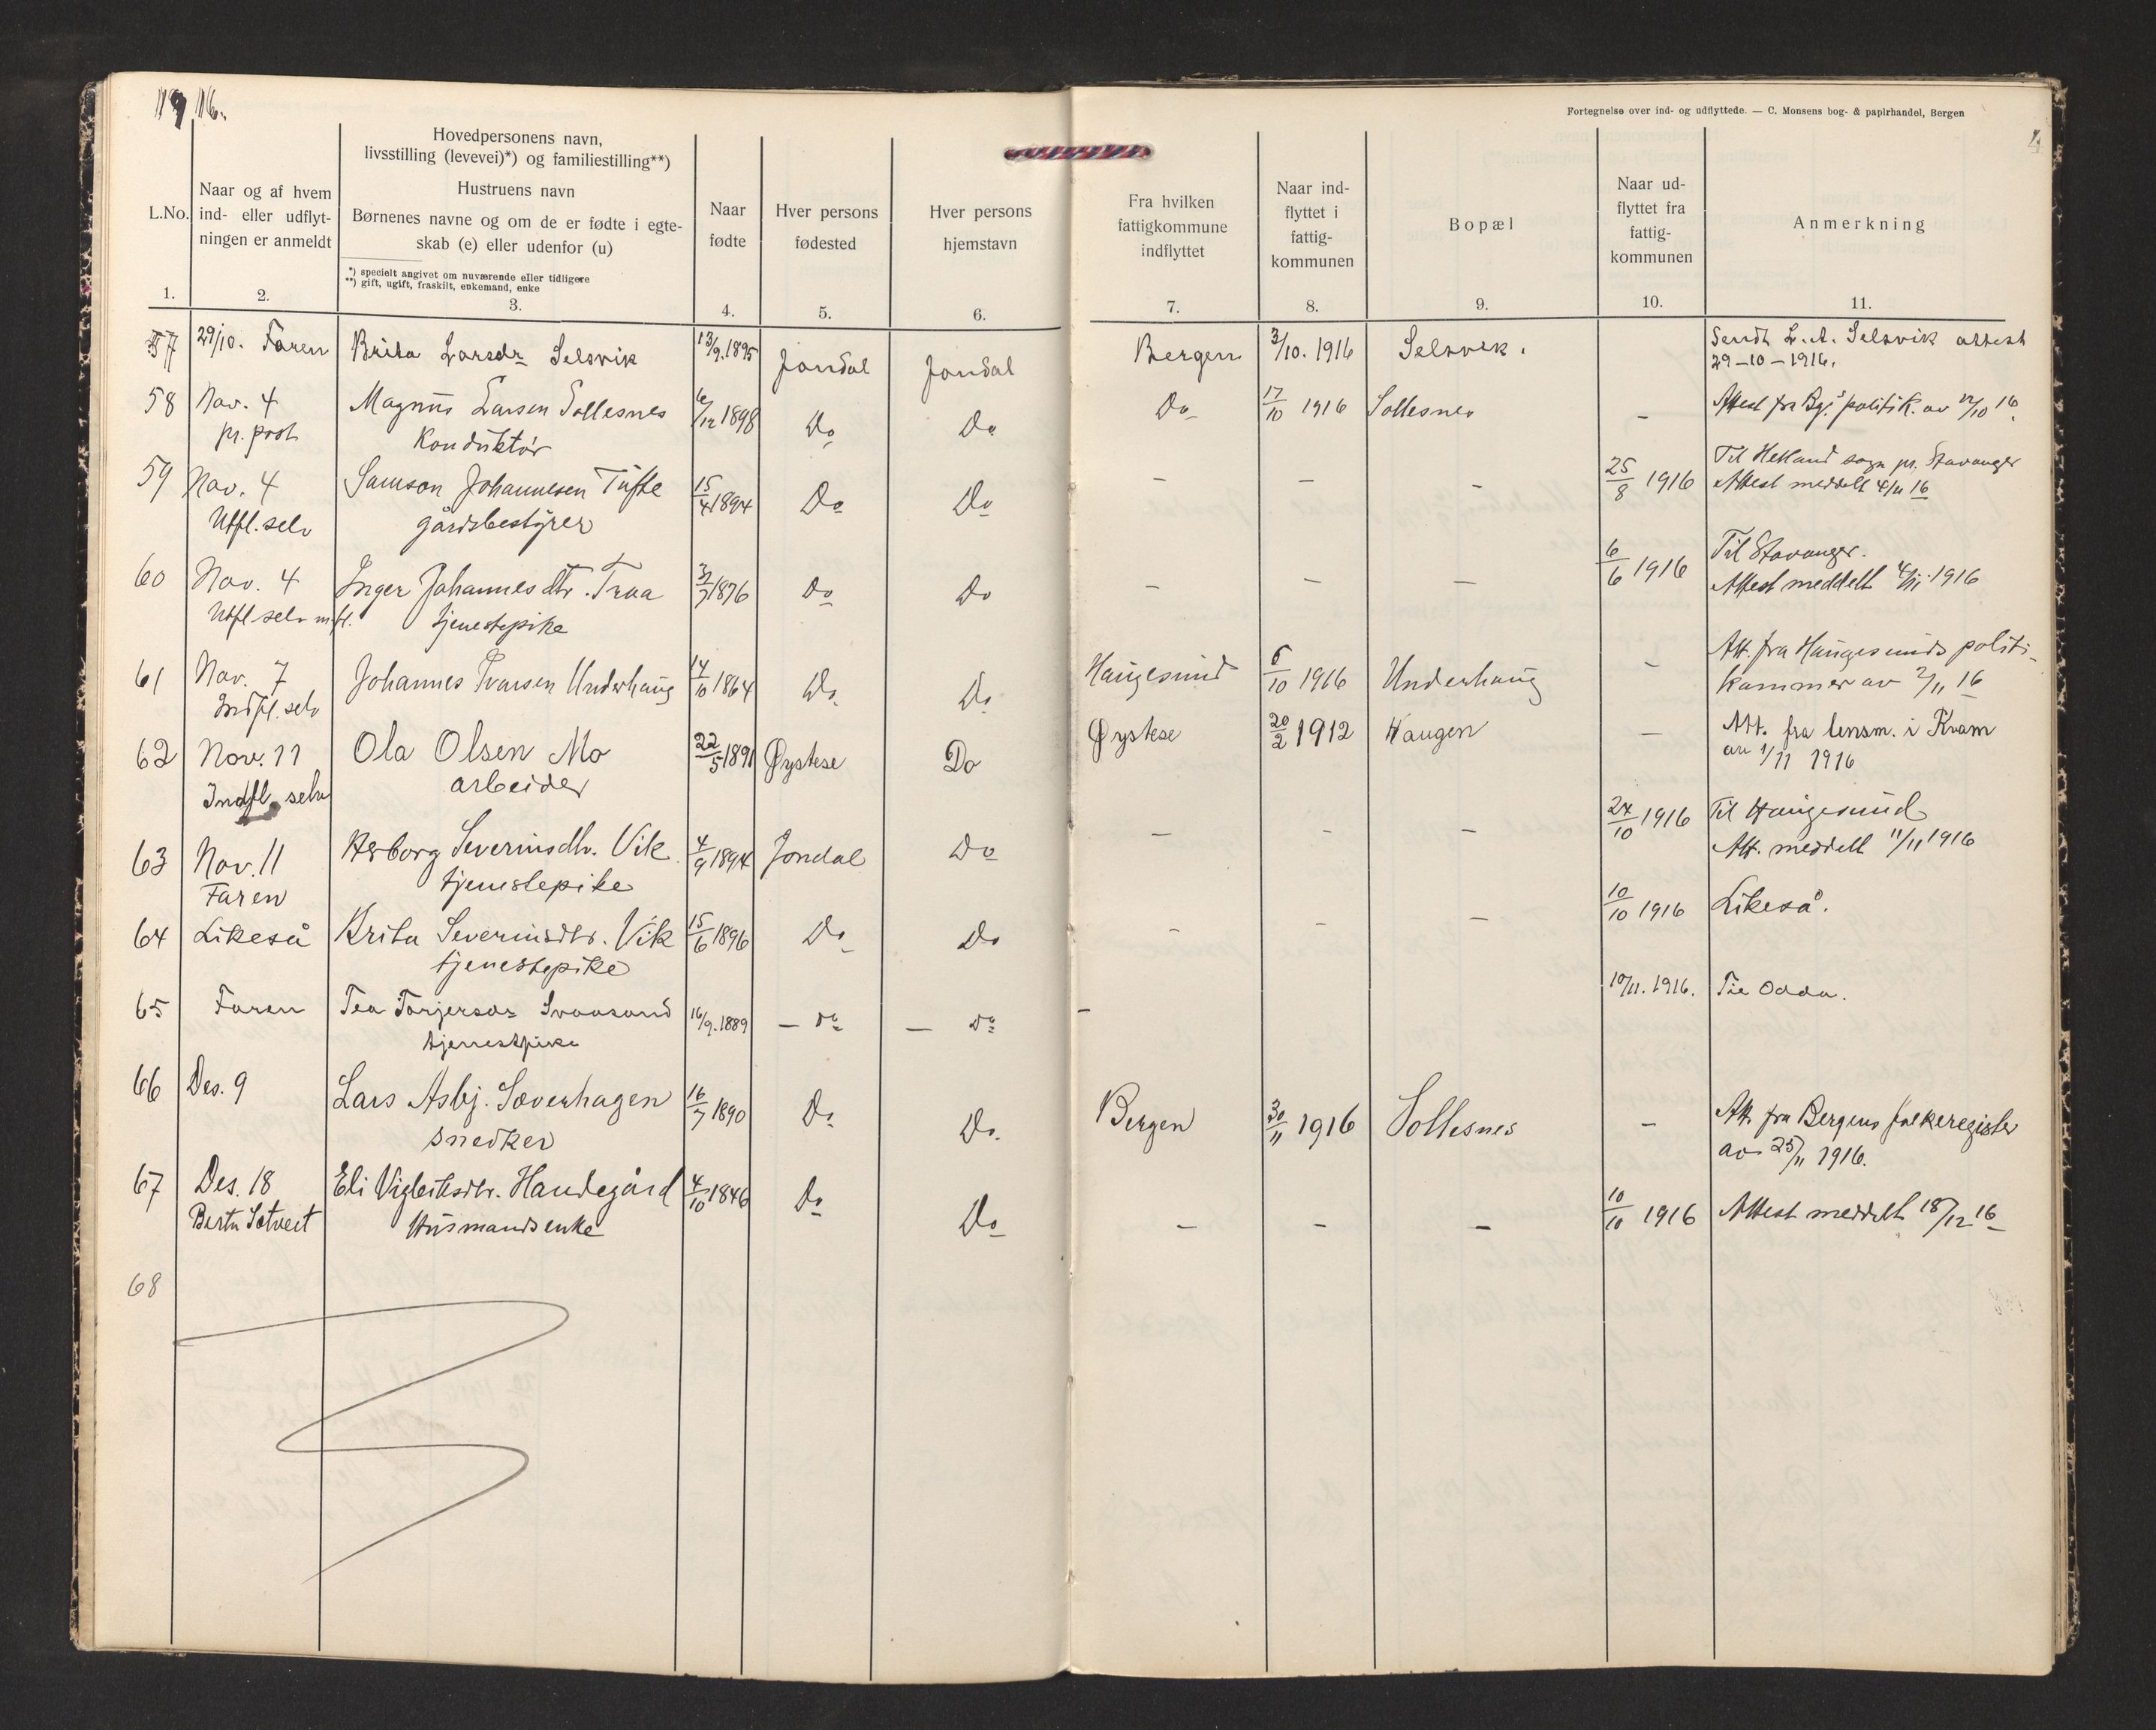 1916.
Fortegnelse over ind- og udflyttede. — C. Monsens bog- & papirhandel, Bergen
4
L.No.
1.
Naar og af hvem
ind- eller udflyt-
ningen er anmeldt
2.
Hovedpersonens navn,
livsstilling (levevei)*) og familiestilling**)
Hustruens navn
Børnenes navne og om de er fødte i egte-
skab (e) eller udenfor (u)
*) specielt angivet om nuværende eller tidligere
**) gift, ugift, fraskilt, enkemand, enke
3.
Naar
fødte
4.
Hver persons
fødested
5.
Hver persons
hjemstavn
6.
Fra hvilken
fattigkommune
indflyttet
7.
Naar ind-
flyttet i
fattig-
kommunen
8.
Bopæl
9.
Naar ud-
flyttet fra
fattig-
kommunen
10.
Anmerkning
11.
57 29/10. Faren Brita Larsdr Selsvik 13/9.1895 Jondal Jondal Bergen 3/10. 1916 Selsvik. Sendt L. A. Selsvik attest
29-10-1916.
58 Nov. 4 Magnus Larsen Sollesnes 6/12 1898 Do Do Do 17/10 1916 Sollesnes - Attest fra Bg.s politik. av 12/10 16.
pr. post Konduktør
59 Nov. 4 Samson Johannesen Tufte 15/4 1894 Do Do - - - 25/8 1916 Til Hetland sogn pr. Stavanger
Utfl. selv gårdsbestyrer Attest meddelt 4/11 16
60 Nov. 4 Inger Johannesdtr. Traa 1876 Do Do - - - 6/6 1916 Til Stavanger.
Utfl. selv m. fl. tjenestepike Attest meddelt 4/11 1916
61 Nov. 7 Johannes Ivarsen Underhaug 14/10 1864 Do Do Haugesund 6/10 1916 Underhaug - Att. fra Haugesunds politi-
Indfl. selv kammer av 2/11 16
62 Nov. 11 Ola Olsen Mo 22/5 1891 Øystese Do Øystese 20/2 1912 Haugen - Att. fra lensm. i Kvam
Indfl. selv arbeider av 1/11 1916
63 Nov. 11 Herborg Severinsdtr. Vik 4/9 1894 Jondal Do - - - 24/10 1916 Til Haugesund
Faren tjenestepike Att. meddelt 11/11 1916
64 Likeså Brita Severinsdtr. Vik 15/6 1896 Do Do - - - 10/10 1916 Likeså.
tjenestepike
65 Faren Tea Torjersdr Svaasand 16/9.1889 - do - do - 10/11. 1916. Til Odda.
tjenestpike
66 Des. 9 Lars Asbj. Sæverhagen 16/7 1890 Do Do Bergen 30/11 1916 Sollesnes - Att. fra Bergens folkeregister
snedker av 25/11 1916.
67 Des. 18 Eli Vigleiksdtr. Handegård 4/10 1846 Do Do - - - 10/10 1916 Attest meddelt 18/12 16
Berta Sætveit Husmandsenke
68